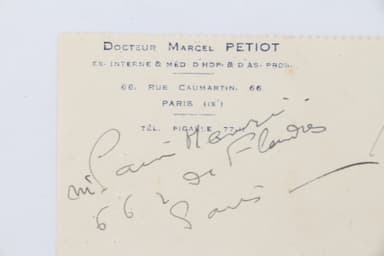 DOCTEUR MARCEL PETIOT
EX-INTERNE & MÉD. D'HOP. & D'AS. PROV.
66, RUE CAUMARTIN, 66
PARIS (IXᵉ)
TÉL. PIGALLE 77-11
Mr
66 r de Flandres
Paris